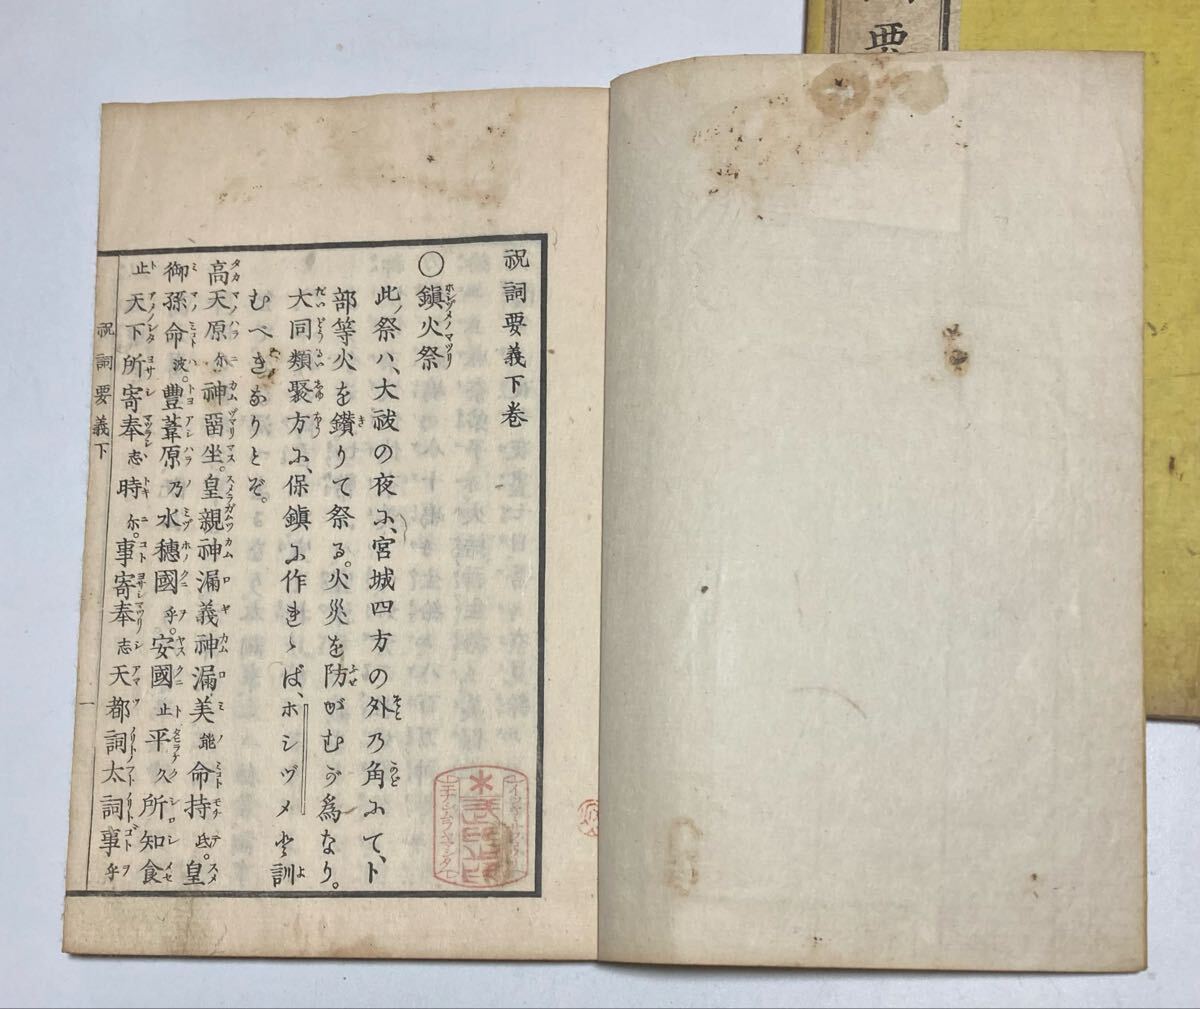 要
祝詞要義下卷
〇鎭火祭
此ノ祭ハ、大祓の夜に、宮城四方の外乃角にて、卜
部等火を鑚りて祭る。火災を防がむが爲なり。
大同類聚方に、保鎭に作れゝば、ホシヅメと訓
むべきなりとぞ。
高天原尓神畱坐。皇親神漏義神漏美能命持氐。皇
御孫命波。豐葦原乃水穗國乎。安國止平久所知食
止天下所寄奉志時尓。事寄奉志天都詞太詞事乎
祝詞要義下
一